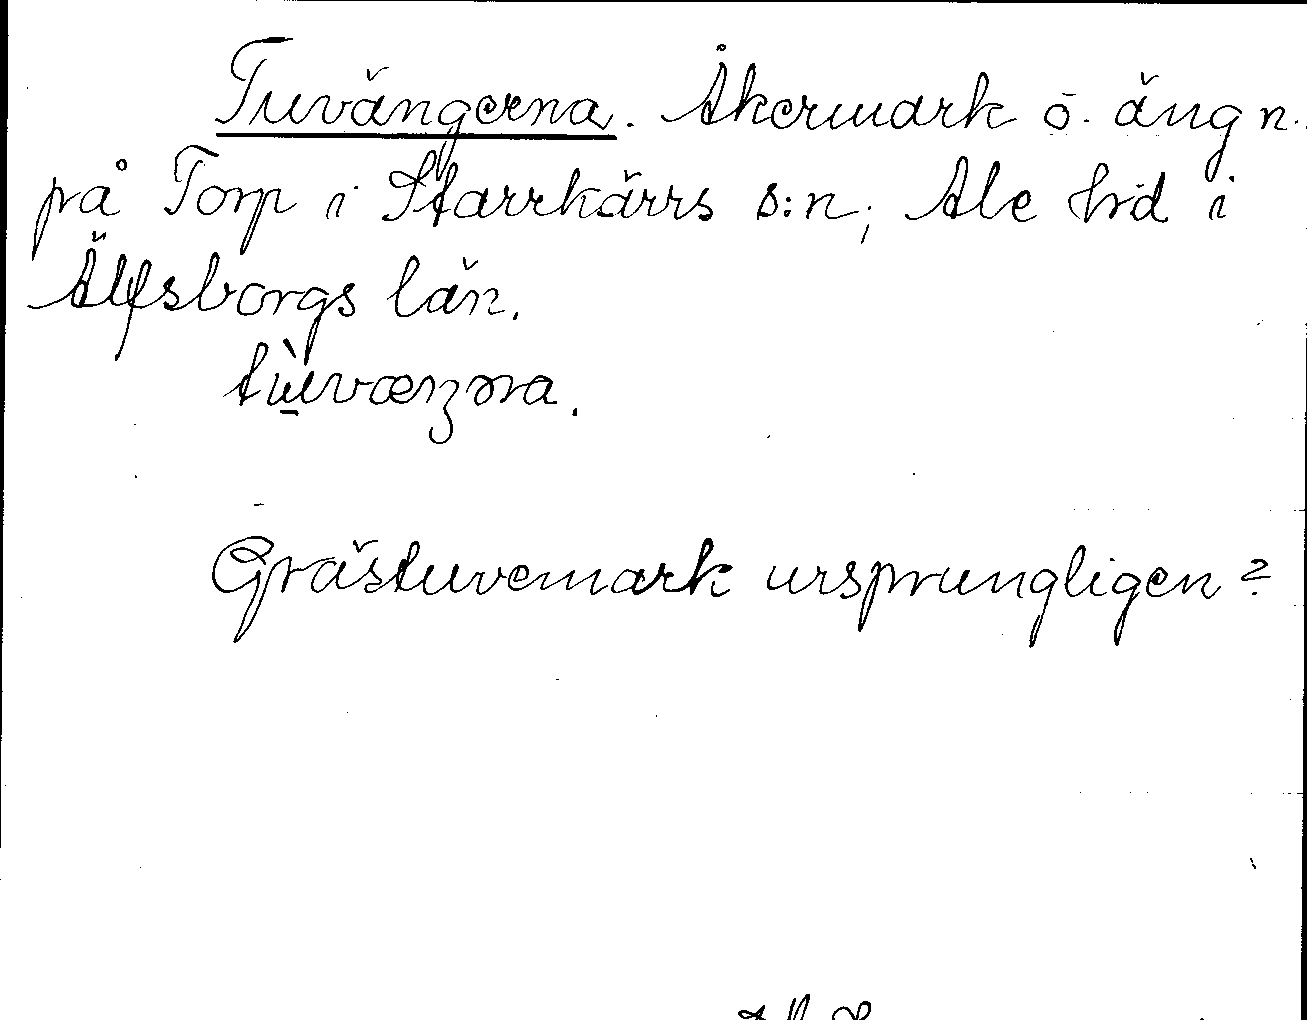 Tuvängerna. Åkermark o. äng n.
på Torp i Starrkärrs s:n, Ale hrd i
Älfsborgs län.
tùvæŋəna.
Grästuvemark ursprungligen?